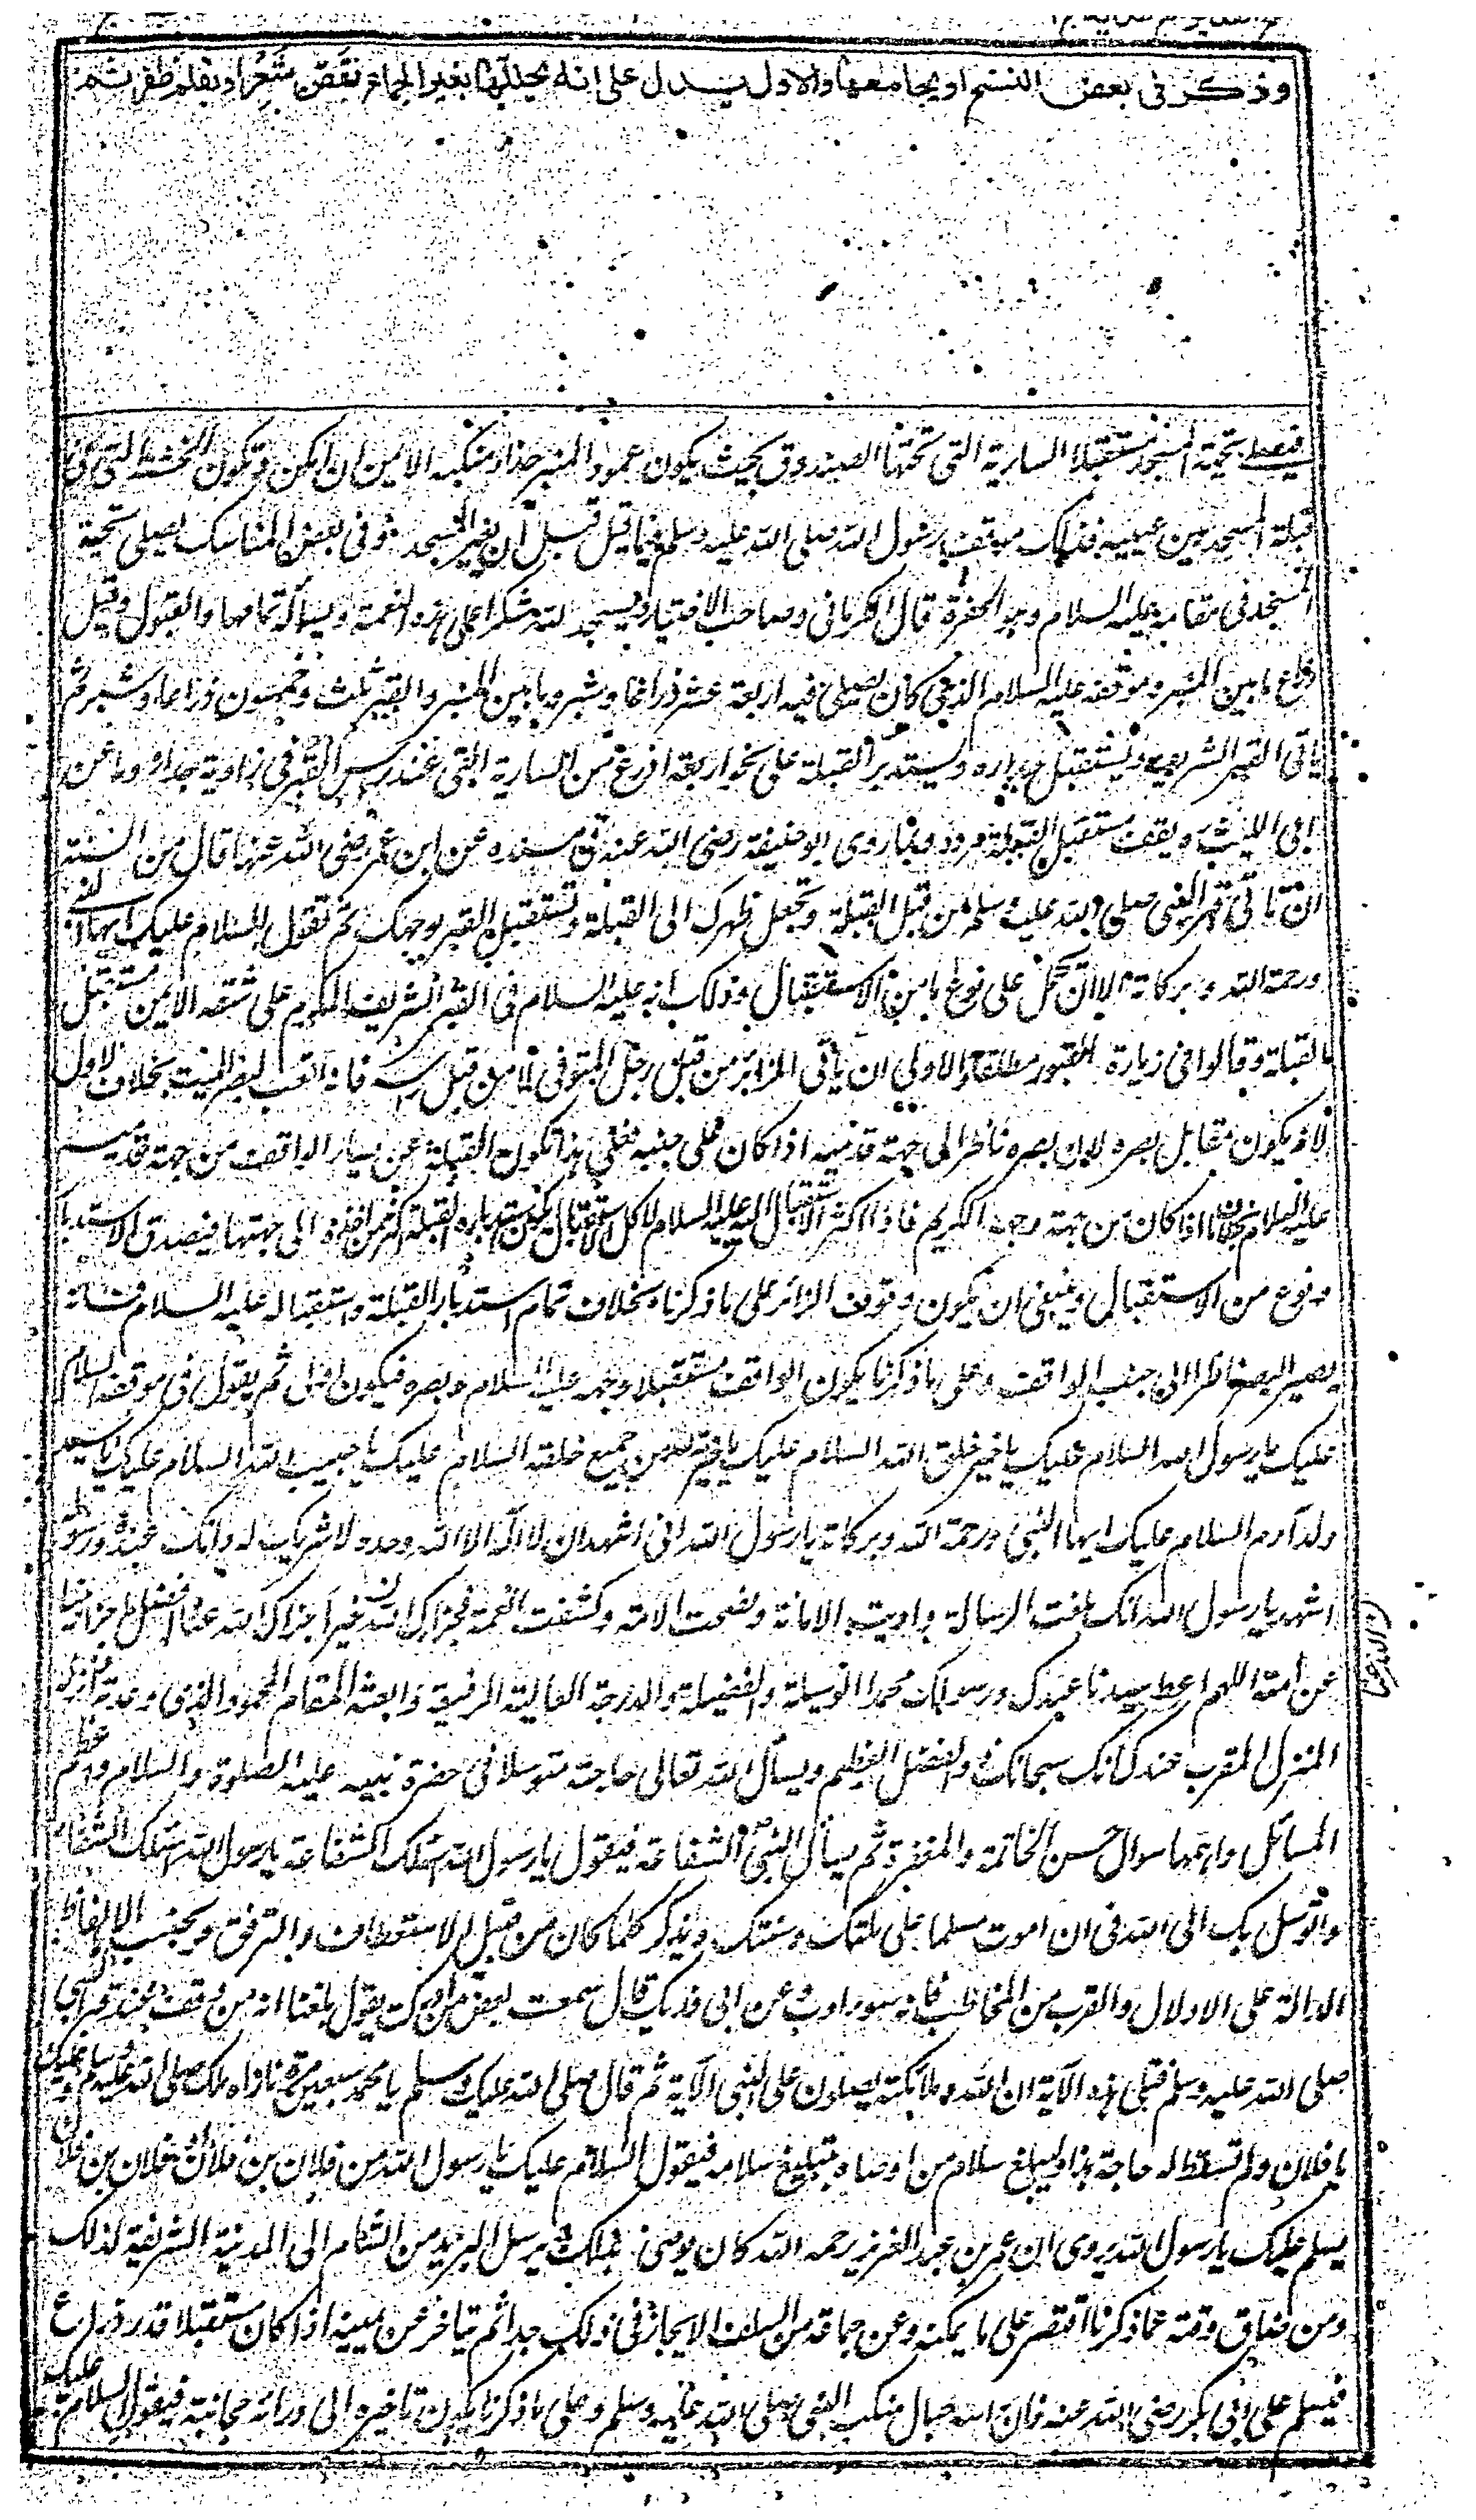 وذكر فى بعض النسخ او يجامعها والاول يدل على انه يحللها بغير الجماع بقص شعر او بقلم ظفر ثم
فيصلى تحية المسجد مستقبلا السارية التى تحتها الصندوق بحيث يكون عمود المنبر حذاء منكبه الايمن ان امكن وتكون الخشبة التى فى
قبلة المسجد بين عينيه فذلك موقف رسول الله صلى الله عليه وسلم فيما قيل قبل ان يغير المسجد وفى بعض المناسك يصلى تحية
المسجد فى مقامه عليه السلام وهو الحفرة قال الكرمانى وصاحب الاختيار ويسجد لله شكرا على هذه النعمة ويسأله تمامها والقبول وقيل
ذرع ما بين المنبر وموقفه عليه السلام الذى كان يصلى فيه اربعة عشر ذراعا وشبر وما بين المنبر والقبر ثلث وخمسون ذراعا وشبر ثم
ياتى القبر الشريف ويستقبل جداره ويستدبر القبلة على نحو اربعة اذرع من السارية التى عند رأس القبر فى زاوية جداره وما عن
ابى الليث ويقف مستقبل القبلة مردود بما روى ابو حنيفة رضى الله عنه فى مسنده عن ابن عمر رضى الله عنهما قال من السنة
ان تاتى قبر النبى صلى الله عليه وسلم من قبل القبلة وتجعل ظهرك الى القبلة وتستقبل القبر بوجهك ثم تقول السلام عليك ايها النبى
ورحمة الله وبركاته الا ان يحمل على نوع ما من الاستقبال وذلك انه عليه السلام فى القبر الشريف المكرم على شقه الايمن مستقبل
القبلة وقالوا فى زيارة القبور مطلقا الاولى ان ياتى الزائر من قبل رجل المتوفى لا من قبل رأسه فانه اتعب لبصر الميت بخلاف الاول
لانه يكون مقابل بصره لان بصره ناظر الى جهة قدميه اذا كان على جنبه فعلى هذا تكون القبلة عن يسار الواقف من جهة قدميه
عليه السلام بخلاف ما اذا كان من جهة وجهه الكريم فاذا اكثر الاستقبال اليه عليه السلام لا كل الاستقبال يكون استدباره القبلة اكثر من اخذه الى جهتها فيصدق الاستدبار
ونوع من الاستقبال وينبغى ان يكون وقوف الزائر على ما ذكرنا بخلاف تمام استدبار القبلة واستقباله عليه السلام فانه
يصير البصر ناظرا الى جنب الواقف وعلى ما ذكرنا يكون الواقف مستقبلا وجهه عليه السلام وبصره فيكون اولى ثم يقول فى موقفه السلام
عليك يا رسول الله السلام عليك يا خير خلق الله السلام عليك يا خيرة الله من جميع خلقه السلام عليك يا حبيب الله السلام عليك يا سيد
ولد آدم السلام عليك ايها النبى ورحمة الله وبركاته يا رسول الله انى اشهد ان لا اله الا الله وحده لا شريك له وانك عبده ورسوله
اشهد يا رسول الله انك بلغت الرسالة واديت الامانة ونصحت الامة وكشفت الغمة فجزاك الله خيرا جزاك الله عنا افضل ما جزى نبيا
عن امته اللهم اعط سيدنا عبدك ورسولك محمدا الوسيلة والفضيلة والدرجة العالية الرفيعة وابعثه المقام المحمود الذى وعدته وانزله
المنزل المقرب عندك انك سبحانك ذو الفضل العظيم ويسأل الله تعالى حاجته متوسلا فى حضرة نبيه عليه الصلوة والسلام واعظم
المسائل واهمها سوال حسن الخاتمة والمغفرة ثم يسأل النبى الشفاعة فيقول يا رسول الله اسئلك الشفاعة يا رسول الله اسئلك الشفاعة
واتوسل بك الى الله فى ان اموت مسلما على ملتك وسنتك ويذكر كلما كان من قبيل الاستعطاف والترفق ويجتنب الالفاظ
الدالة على الادلال والقرب من المخاطب فانه سوء ادب وعن ابى فديك قال سمعت بعض من ادركت يقول بلغنا انه من وقف عند قبر النبى
صلى الله عليه وسلم فتلى هذه الآية ان الله وملائكته يصلون على النبى الآية ثم قال صلى الله عليك وسلم يا محمد سبعين مرة ناداه ملك صلى الله عليك
يا فلان ولم تسقط له حاجة هذا وليبلغ سلام من اوصاه بتبليغ سلامه فيقول السلام عليك يا رسول الله من فلان بن فلان او فلان بن فلان
يسلم عليك يا رسول الله يروى ان عمر بن عبد العزيز رحمه الله كان يوصى بذلك ويرسل البريد من الشام الى المدينة الشريفة لذلك
ومن ضاق وقته عما ذكرنا اقتصر على ما يمكنه وعن جماعة من السلف الايجاز فى ذلك جدا ثم يتاخر عن يمينه اذا كان مستقبلا قدر ذراع
فيسلم على ابى بكر رضى الله عنه فان رأسه حيال منكب النبى صلى الله عليه وسلم وعلى ما ذكرنا يكون تاخيره الى ورائه بجانبه فيقول السلام عليك